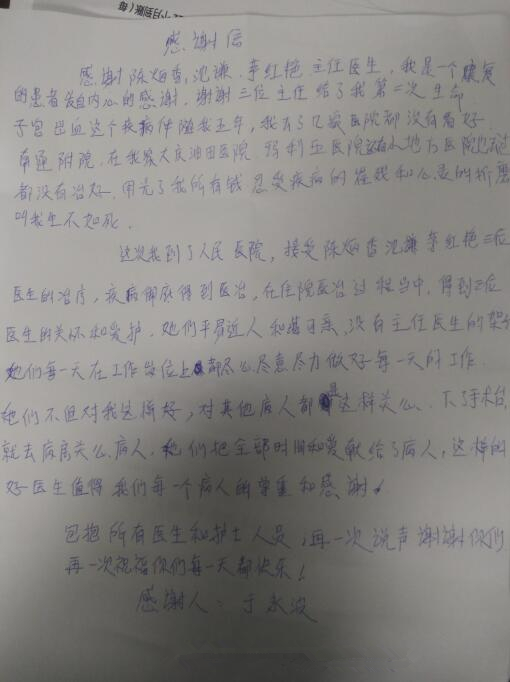 感谢信
感谢陈烟香,沈谦,李红艳主任医生,我是一个康复
的患者发自内心的感谢,谢谢三位主任给了我第二次生命
子宫出血这个疾病伴随我五年,我去了几家医院都没有看好
南通附院,在我家大庆油田医院,
都没有治好,用光了我所有钱 忍受疾病的 和心灵的折磨
叫我生不如死.
这次我到了人民医院,接受陈烟香沈谦李红艳三位
医生的治疗,疾病彻底得到医治,在住院医治过程当中,得到三位
医生的关怀和爱护.她们平易近人和蔼可亲,没有主任医生的架子
她们每一天在工作岗位上都尽心尽意尽力做好每一天的工作.
她们不但对我这样好,对其他病人都是这样关心.下了手术台,
就去病房关心病人,她们把全部时间和爱献给了病人,这样的
好医生值得我们每一个病人的尊重和感谢!
包抱所有医生和护士人员,再一次说声谢谢你们
再一次祝福你们每一天都快乐!
感谢人:于永波